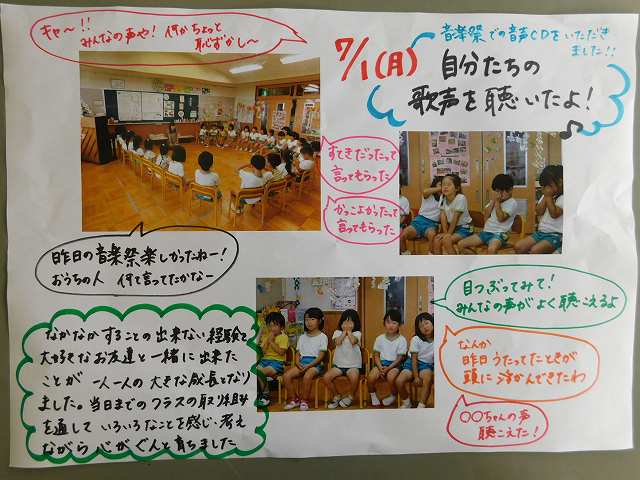 キャ〜!!
みんなの声や! 何かちょっと
恥ずかし〜
7/1(月)
音楽祭での音声CDをいただき
ました!!
自分たちの
歌声を聴いたよ!
すてきだったって
言ってもらった
かっこよかったって
言ってもらった
昨日の音楽祭楽しかったねー!
おうちの人 何て言ってたかなー
目つぶってみて!
みんなの声がよく聴こえるよ
なんか
昨日うたってたときが
頭に浮かんできたわ
〇〇ちゃんの声
聴こえた!
なかなかすることの出来ない経験を
大好きなお友達と一緒に出来た
ことが 一人一人の大きな成長となり
ました。当日までのクラスの取り組み
を通して いろいろなことを感じ・考え
ながら 心がぐんと育ちました